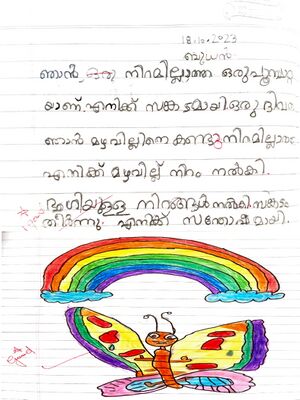 18.10.2023
ബുധൻ
ഞാൻ ഒരു നിറമില്ലാത്ത ഒരു പൂമ്പാറ്റ
യാണ്. എനിക്ക് സങ്കടമായി ഒരു ദിവസം
ഞാൻ മഴവില്ലിനെ കണ്ടു നിറമില്ലാത്ത
എനിക്ക് മഴവില്ല് നിറം നൽകി.
ഭംഗിയുള്ള നിറങ്ങൾ നൽകി. സങ്കടം
തീർന്നു. എനിക്ക് സന്തോഷമായി.